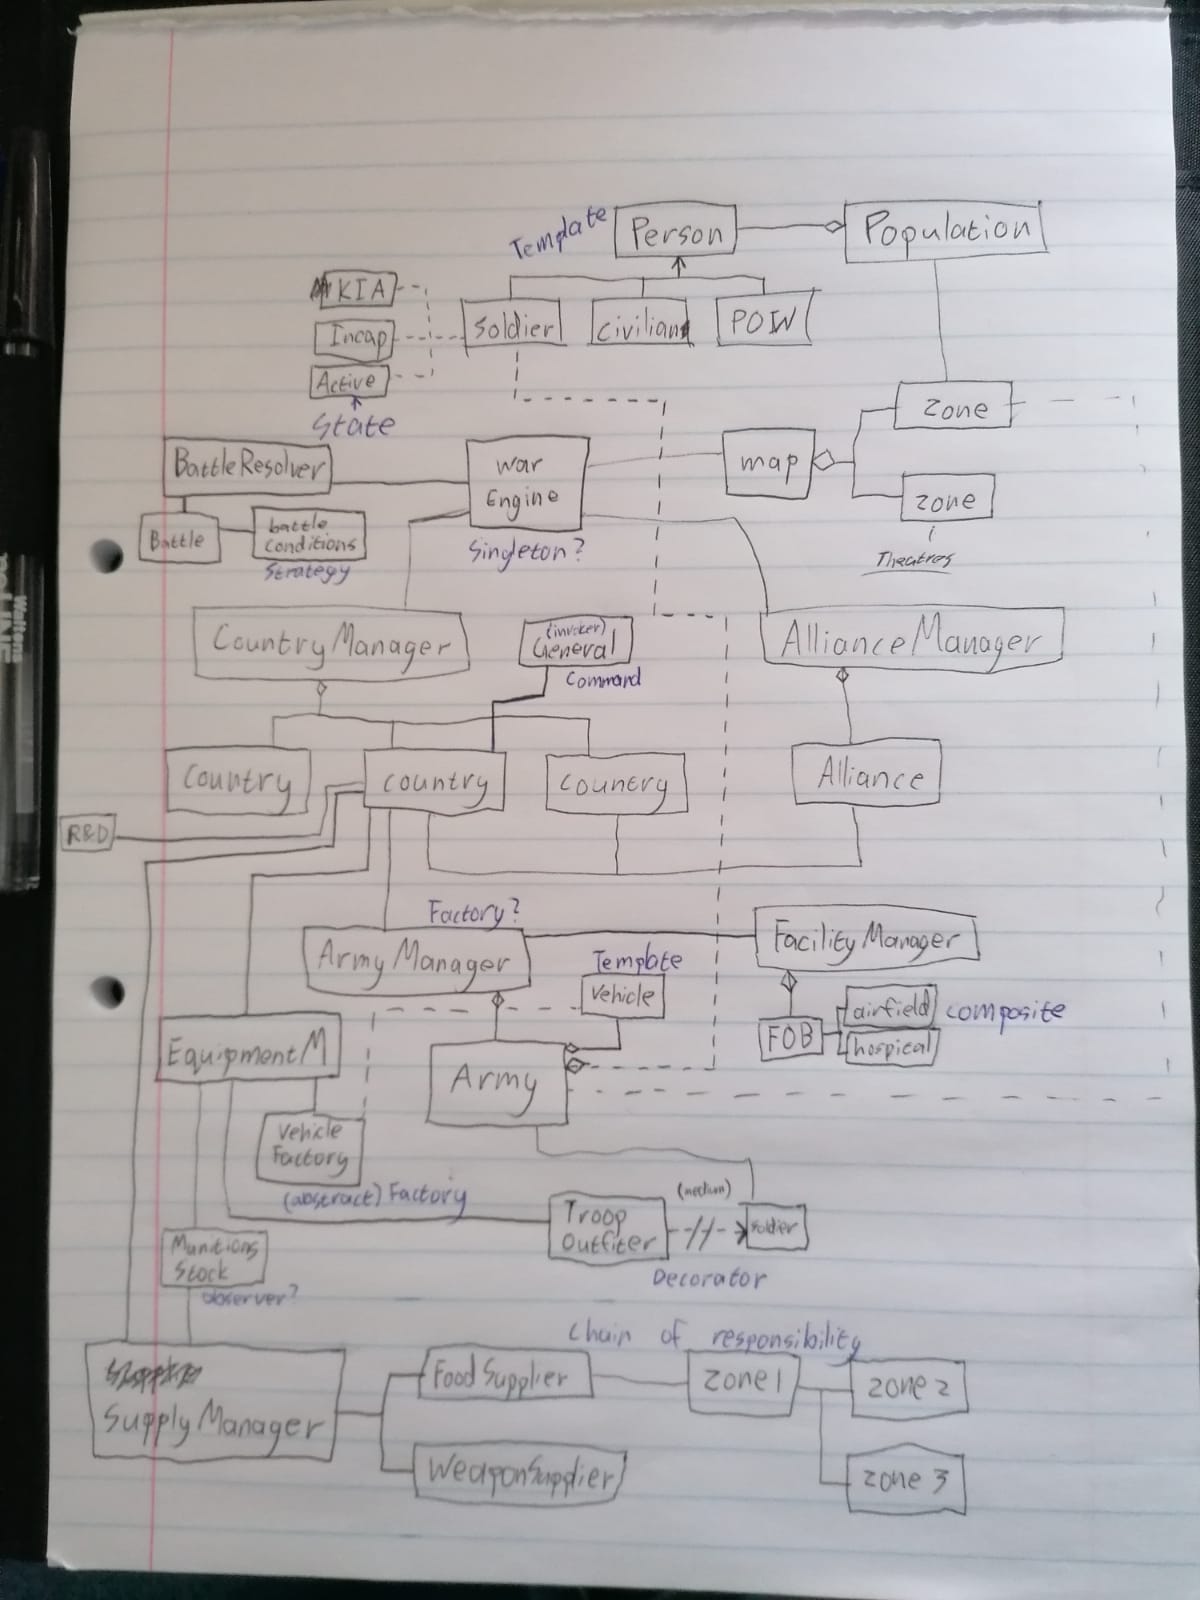 Template
Person
Population
KIA
Soldier
Civilian
POW
Incap
Active
State
Zone
BattleResolver
war
Engine
map
zone
Battle
battle
conditions
Strategy
Singleton?
Theatres
CountryManager
(invoker)
General
Command
AllianceManager
Country
Country
Country
Alliance
R&D
Factory?
ArmyManager
Template
Vehicle
FacilityManager
airfield
composite
FOB
hospical
EquipmentM
Army
Vehicle
Factory
(abstract) Factory
Troop
Outfiter
(medium)
soldier
Decorator
Munitions
Stock
observer?
Chain of responsibility
SupplyManager
FoodSupplier
zone 1
zone 2
WeaponSupplier
zone 3